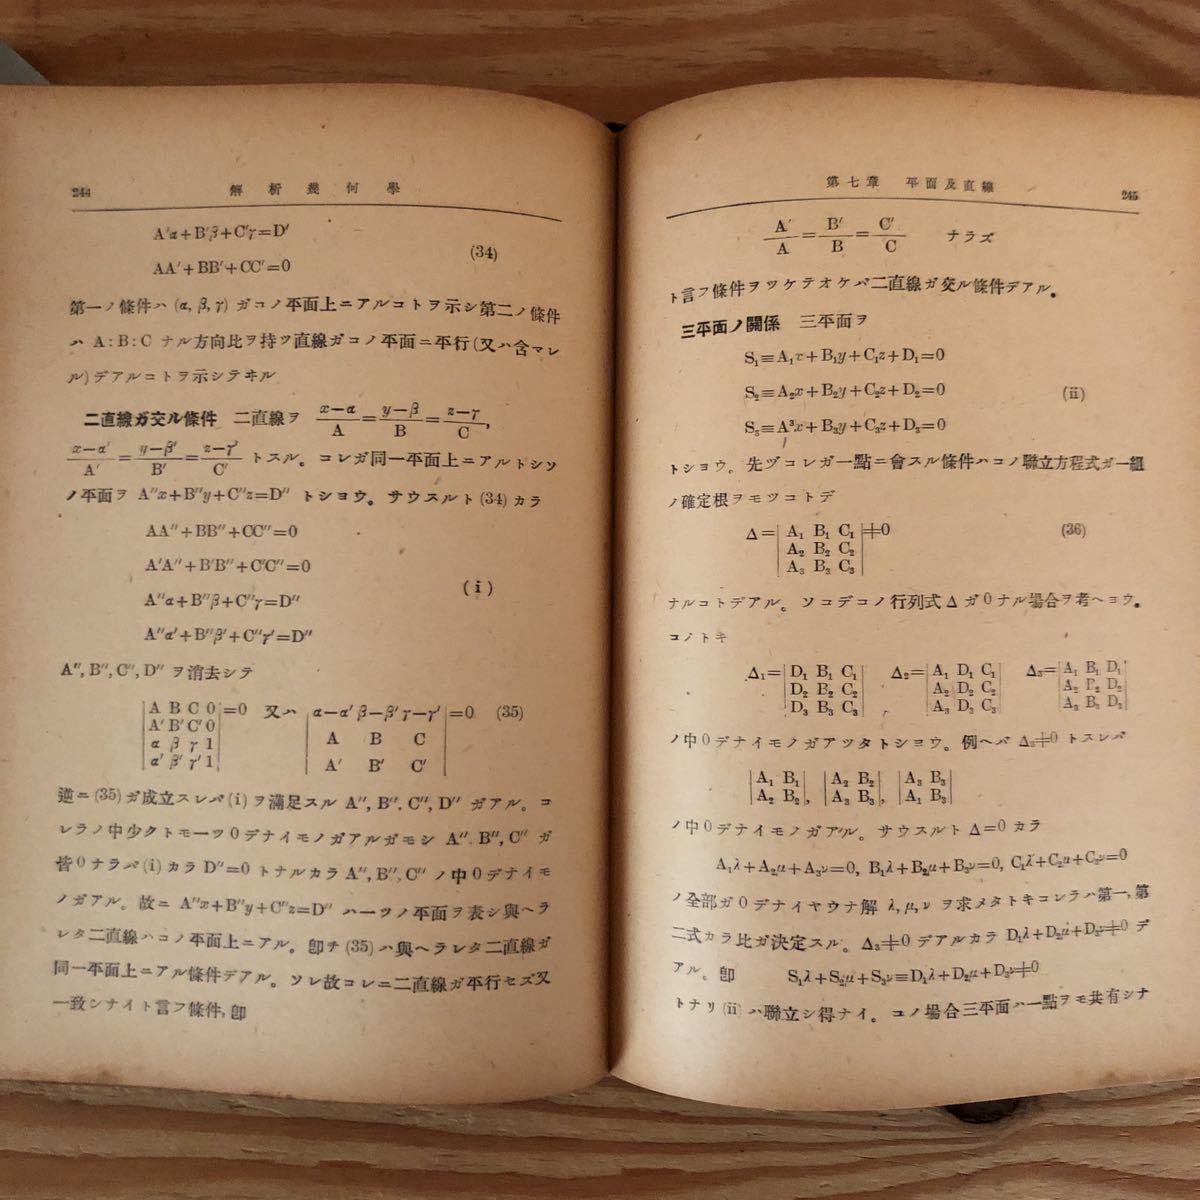 244 解析幾何學
A′α+B′β+C′γ=D′
AA′+BB′+CC′=0 (34)
第一ノ條件ハ (α, β, γ) ガコノ平面上ニアルコトヲ示シ第二ノ條件
ハ A:B:C ナル方向比ヲ持ツ直線ガコノ平面ニ平行(又ハ含マレ
ル)デアルコトヲ示シテヰル
二直線ガ交ル條件 二直線ヲ (x−α)/A=(y−β)/B=(z−γ)/C,
(x−α′)/A′=(y−β′)/B′=(z−γ′)/C′ トスル。コレガ同一平面上ニアルトシソ
ノ平面ヲ A″x+B″y+C″z=D″ トショウ。サウスルト (34) カラ
AA″+BB″+CC″=0
A′A″+B′B″+C′C″=0
A″α+B″β+C″γ=D″ (i)
A″α′+B″β′+C″γ′=D″
A″, B″, C″, D″ ヲ消去シテ
|A B C 0|=0 又ハ |α−α′ β−β′ γ−γ′|=0 (35)
|A′ B′ C′ 0| |A B C|
|α β γ 1| |A′ B′ C′|
|α′ β′ γ′ 1|
逆ニ (35) ガ成立スレバ (i) ヲ滿足スル A″, B″. C″, D″ ガアル。コ
レラノ中少クトモ一ツ0デナイモノガアルガモシ A″. B″, C″ ガ
皆0ナラバ (i) カラ D″=0 トナルカラ A″, B″, C″ ノ中0デナイモ
ノガアル。故ニ A″x+B″y+C″z=D″ ハ一ツノ平面ヲ表シ與ヘラ
レタ二直線ハコノ平面上ニアル。卽チ (35) ハ與ヘラレタ二直線ガ
同一平面上ニアル條件デアル。ソレ故コレニ二直線ガ平行セズ又
一致シナイト言フ條件, 卽
第七章 平面及直線 245
A′/A=B′/B=C′/C ナラズ
ト言フ條件ヲツケテオケバ二直線ガ交ル條件デアル。
三平面ノ關係 三平面ヲ
S₁≡A₁x+B₁y+C₁z+D₁=0
S₂≡A₂x+B₂y+C₂z+D₂=0 (ii)
S₃≡A³x+B₃y+C₃z+D₃=0
トショウ。先ヅコレガ一點ニ會スル條件ハコノ聯立方程式ガ一組
ノ確定根ヲモツコトデ
Δ=|A₁ B₁ C₁|≠0 (36)
|A₂ B₂ C₂|
|A₃ B₃ C₃|
ナルコトデアル。ソコデコノ行列式 Δ ガ0ナル場合ヲ考ヘョウ。
コノトキ
Δ₁=|D₁ B₁ C₁| Δ₂=|A₁ D₁ C₁| Δ₃=|A₁ B₁ D₁|
|D₂ B₂ C₂| |A₂ D₂ C₂| |A₂ B₂ D₂|
|D₃ B₃ C₃| |A₃ D₃ C₃| |A₃ B₃ D₃|
ノ中0デナイモノガアツタトショウ。例ヘバ Δ₃≠0 トスレバ
|A₁ B₁| |A₂ B₂| |A₃ B₃|
|A₂ B₂|, |A₃ B₃|, |A₁ B₁|
ノ中0デナイモノガアル。サウスルト Δ=0 カラ
A₁λ+A₂μ+A₃ν=0, B₁λ+B₂μ+B₃ν=0, C₁λ+C₂μ+C₃ν=0
ノ全部ガ0デナイヤウナ解 λ, μ, ν ヲ求メタトキコレラハ第一, 第
二式カラ比ガ決定スル。Δ₃≠0 デアルカラ D₁λ+D₂μ+D₃ν≠0 デ
アル。卽 S₁λ+S₂μ+S₃ν≡D₁λ+D₂μ+D₃ν≠0
トナリ (ii) ハ聯立シ得ナイ。コノ場合三平面ハ一點ヲモ共有シナ